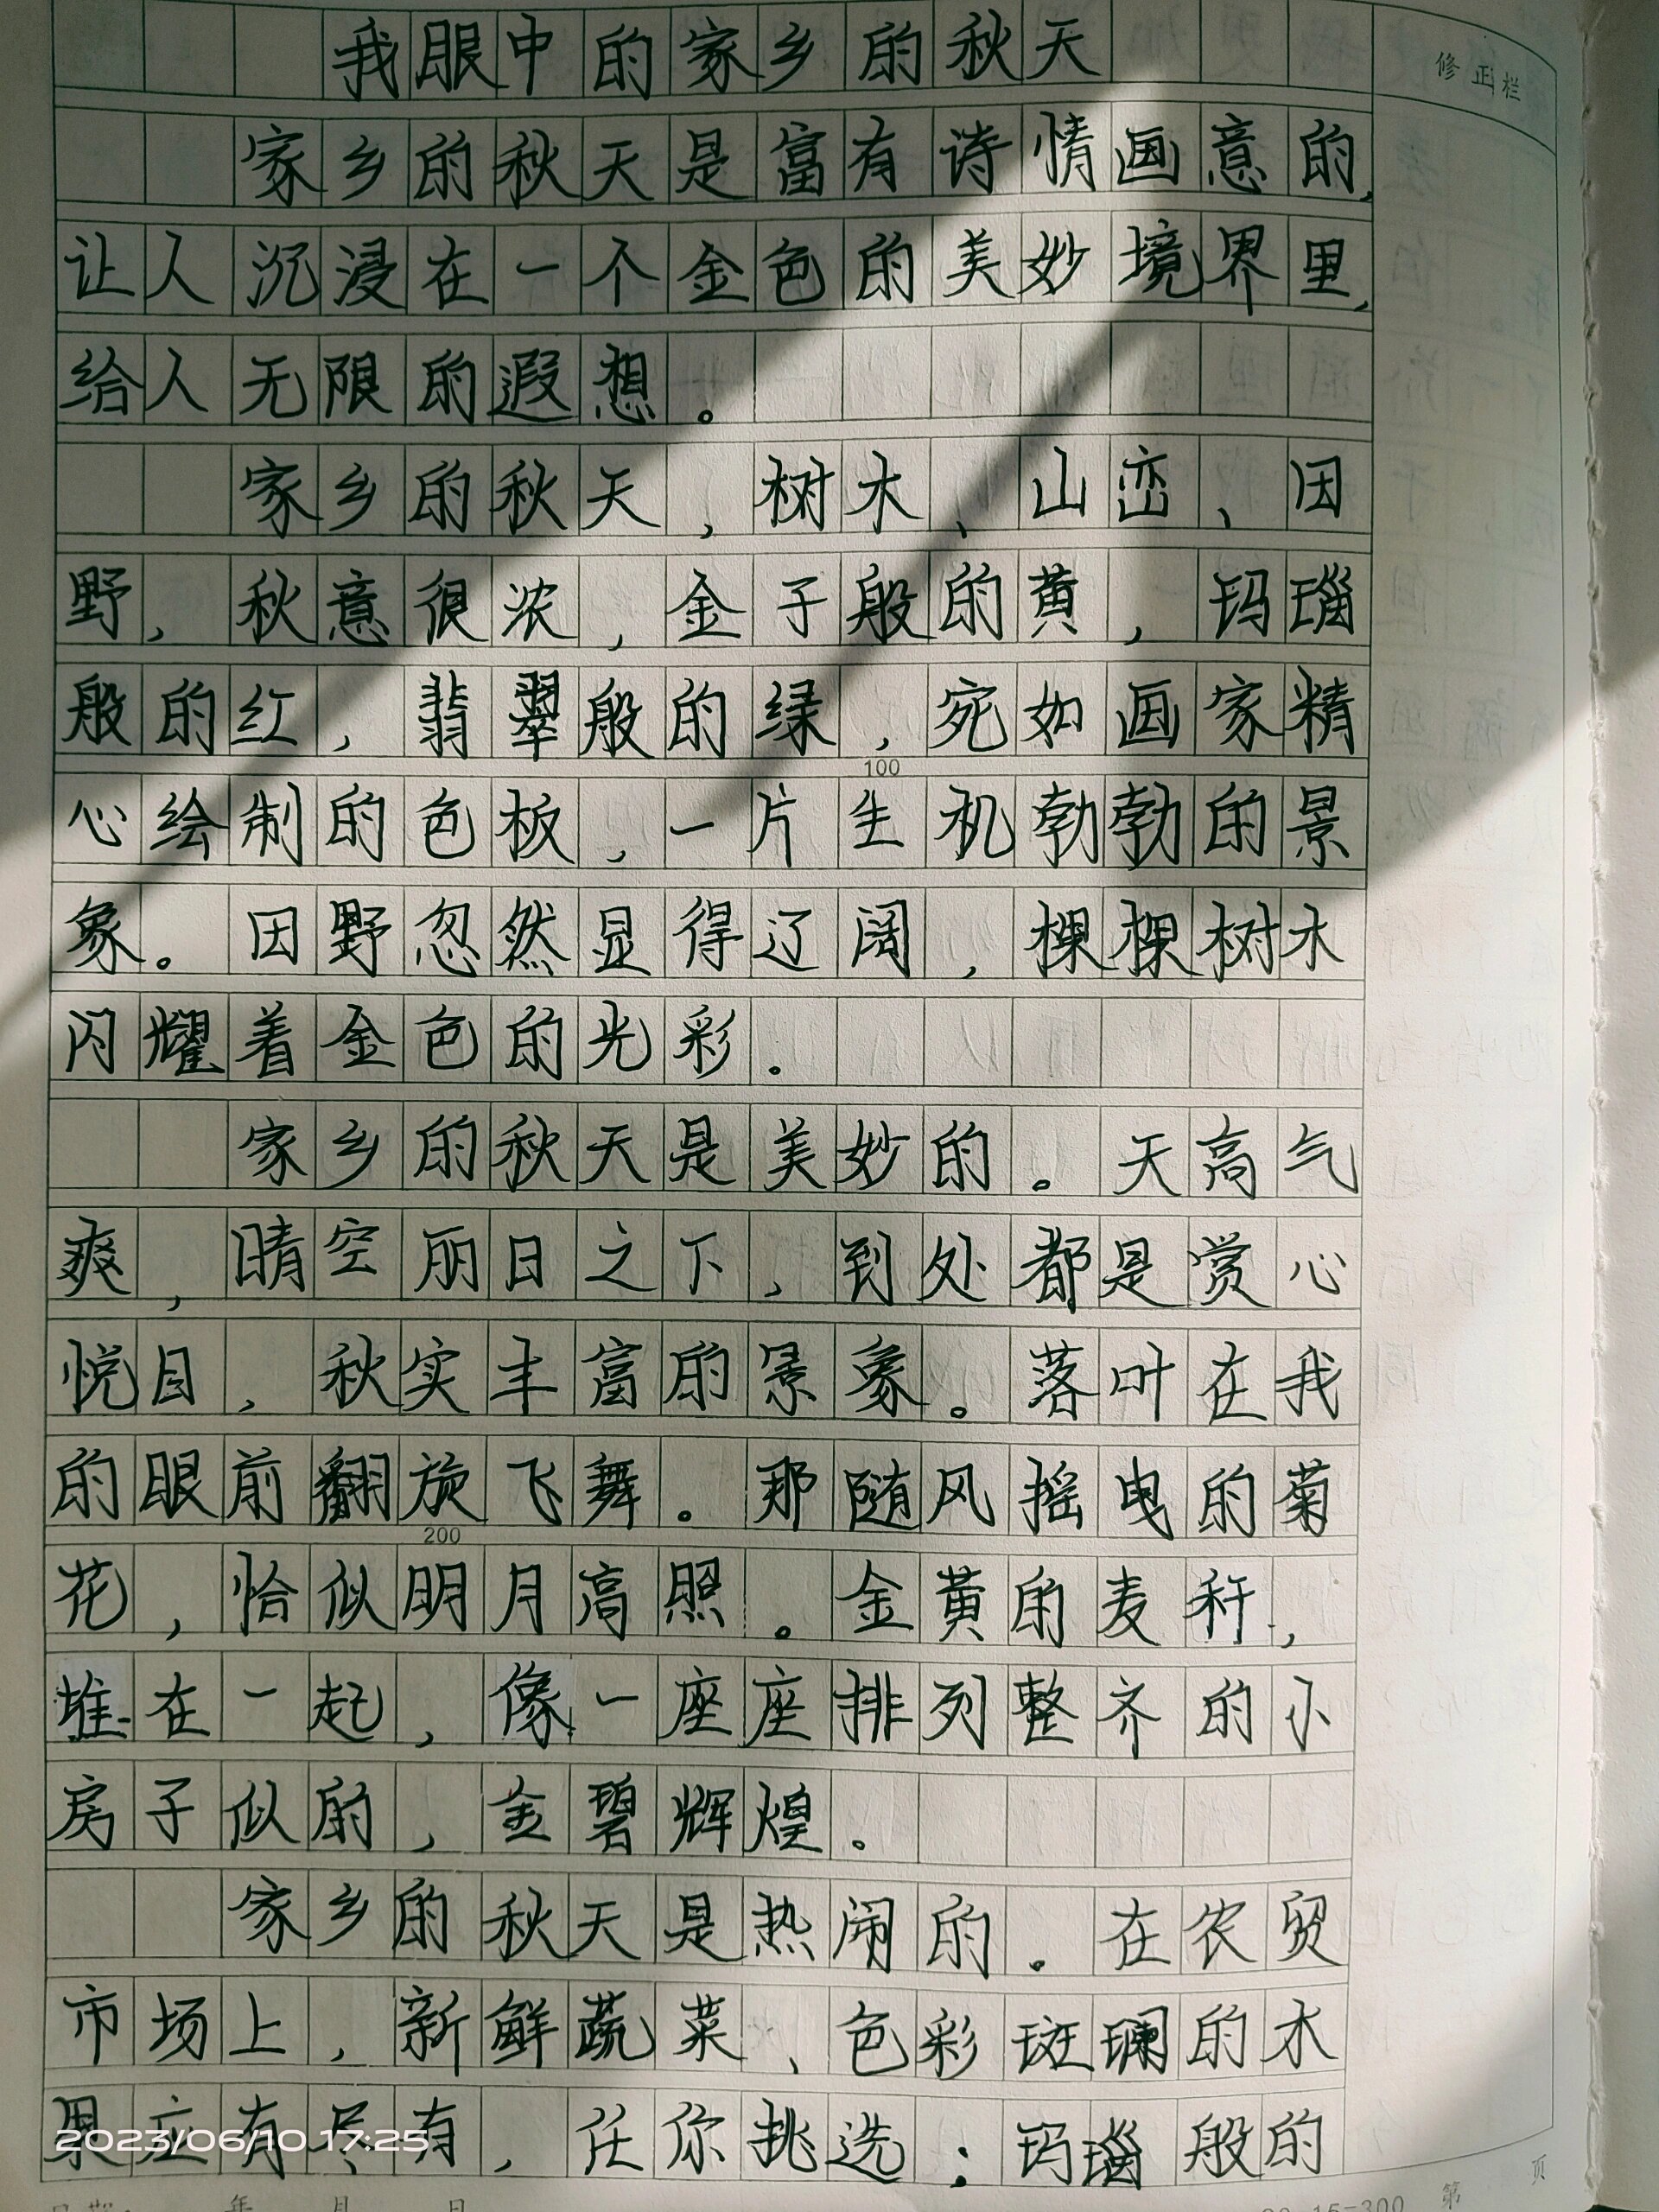 我眼中的家乡的秋天
修正栏
家乡的秋天是富有诗情画意的,
让人沉浸在一个金色的美妙境界里,
给人无限的遐想。
家乡的秋天,树木、山峦、田
野,秋意很浓,金子般的黄,玛瑙
般的红,翡翠般的绿,宛如画家精
100
心绘制的色板,一片生机勃勃的景
象。田野忽然显得辽阔,棵棵树木
闪耀着金色的光彩。
家乡的秋天是美妙的。天高气
爽,晴空丽日之下,到处都是赏心
悦目,秋实丰富的景象。落叶在我
的眼前翻旋飞舞。那随风摇曳的菊
200
花,恰似明月高照。金黄的麦秆,
堆在一起,像一座座排列整齐的小
房子似的,金碧辉煌。
家乡的秋天是热闹的。在农贸
市场上,新鲜蔬菜、色彩斑斓的水
果应有尽有,任你挑选;玛瑙般的
2023/06/10 17:25
年 月 日
15=300 第 页